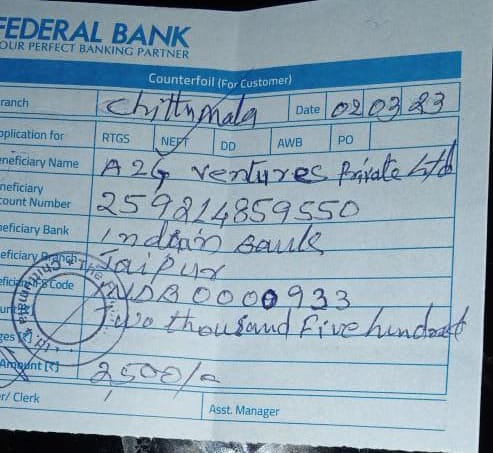 FEDERAL BANK
OUR PERFECT BANKING PARTNER
Counterfoil (For Customer)
ranch Chittumala Date 02 03 23
pplication for RTGS NEFT DD AWB PO
eneficiary Name A2G Ventures Private Ltd
neficiary
count Number 259214859550
neficiary Bank Indian Bank
eficiary Branch Jaipur
Code 0000933
Two thousand Five hundred
Amount [₹] 2,500/-
er/ Clerk Asst. Manager